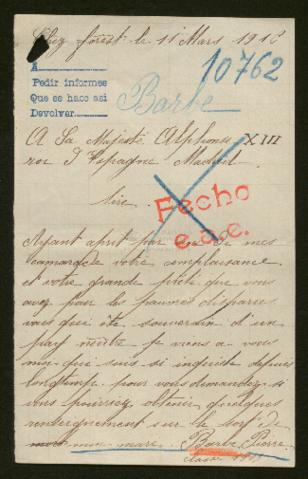 Chez forest le 11 Mars 1916
10762
A
Pedir informes
Que se haco asi
Devolver
Barbe
A Sa Majesté Alphonse XIII
roi d'Espagne Madrid
Sire
Fecho
e.a.e.
Ayant aprit par un de mes
camarade votre complaisance
et votre grande pitié que vous
avez pour les pauvres disparus
vous qui ête souverain d'un
pay neutre je viens a vous
moi qui suis si inquiete depuis
longtemps pour vous demandez si
vous pouriez obtenir quelques
renseignement sur le sort de
mon mari Barbe Pierre
classe